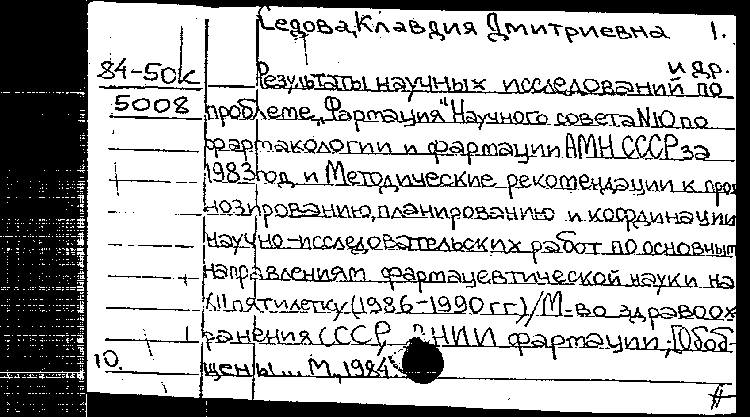 Седова, Клавдия Дмитриевна 1.
и др.
84-50к
5008
Результаты научных исследований по
проблеме „Фармация" Научного совета №10 по
фармакологии и фармации АМН СССР за
1983 год и Методические рекомендации к прог
нозированию, планированию и координации
научно-исследовательских работ по основным
направлениям фармацевтической науки на
XII пятилетку (1986-1990 гг.)/М-во здравоох
ранения СССР, ВНИИ фармации; [Обоб-
щены... М., 1984
10.
#